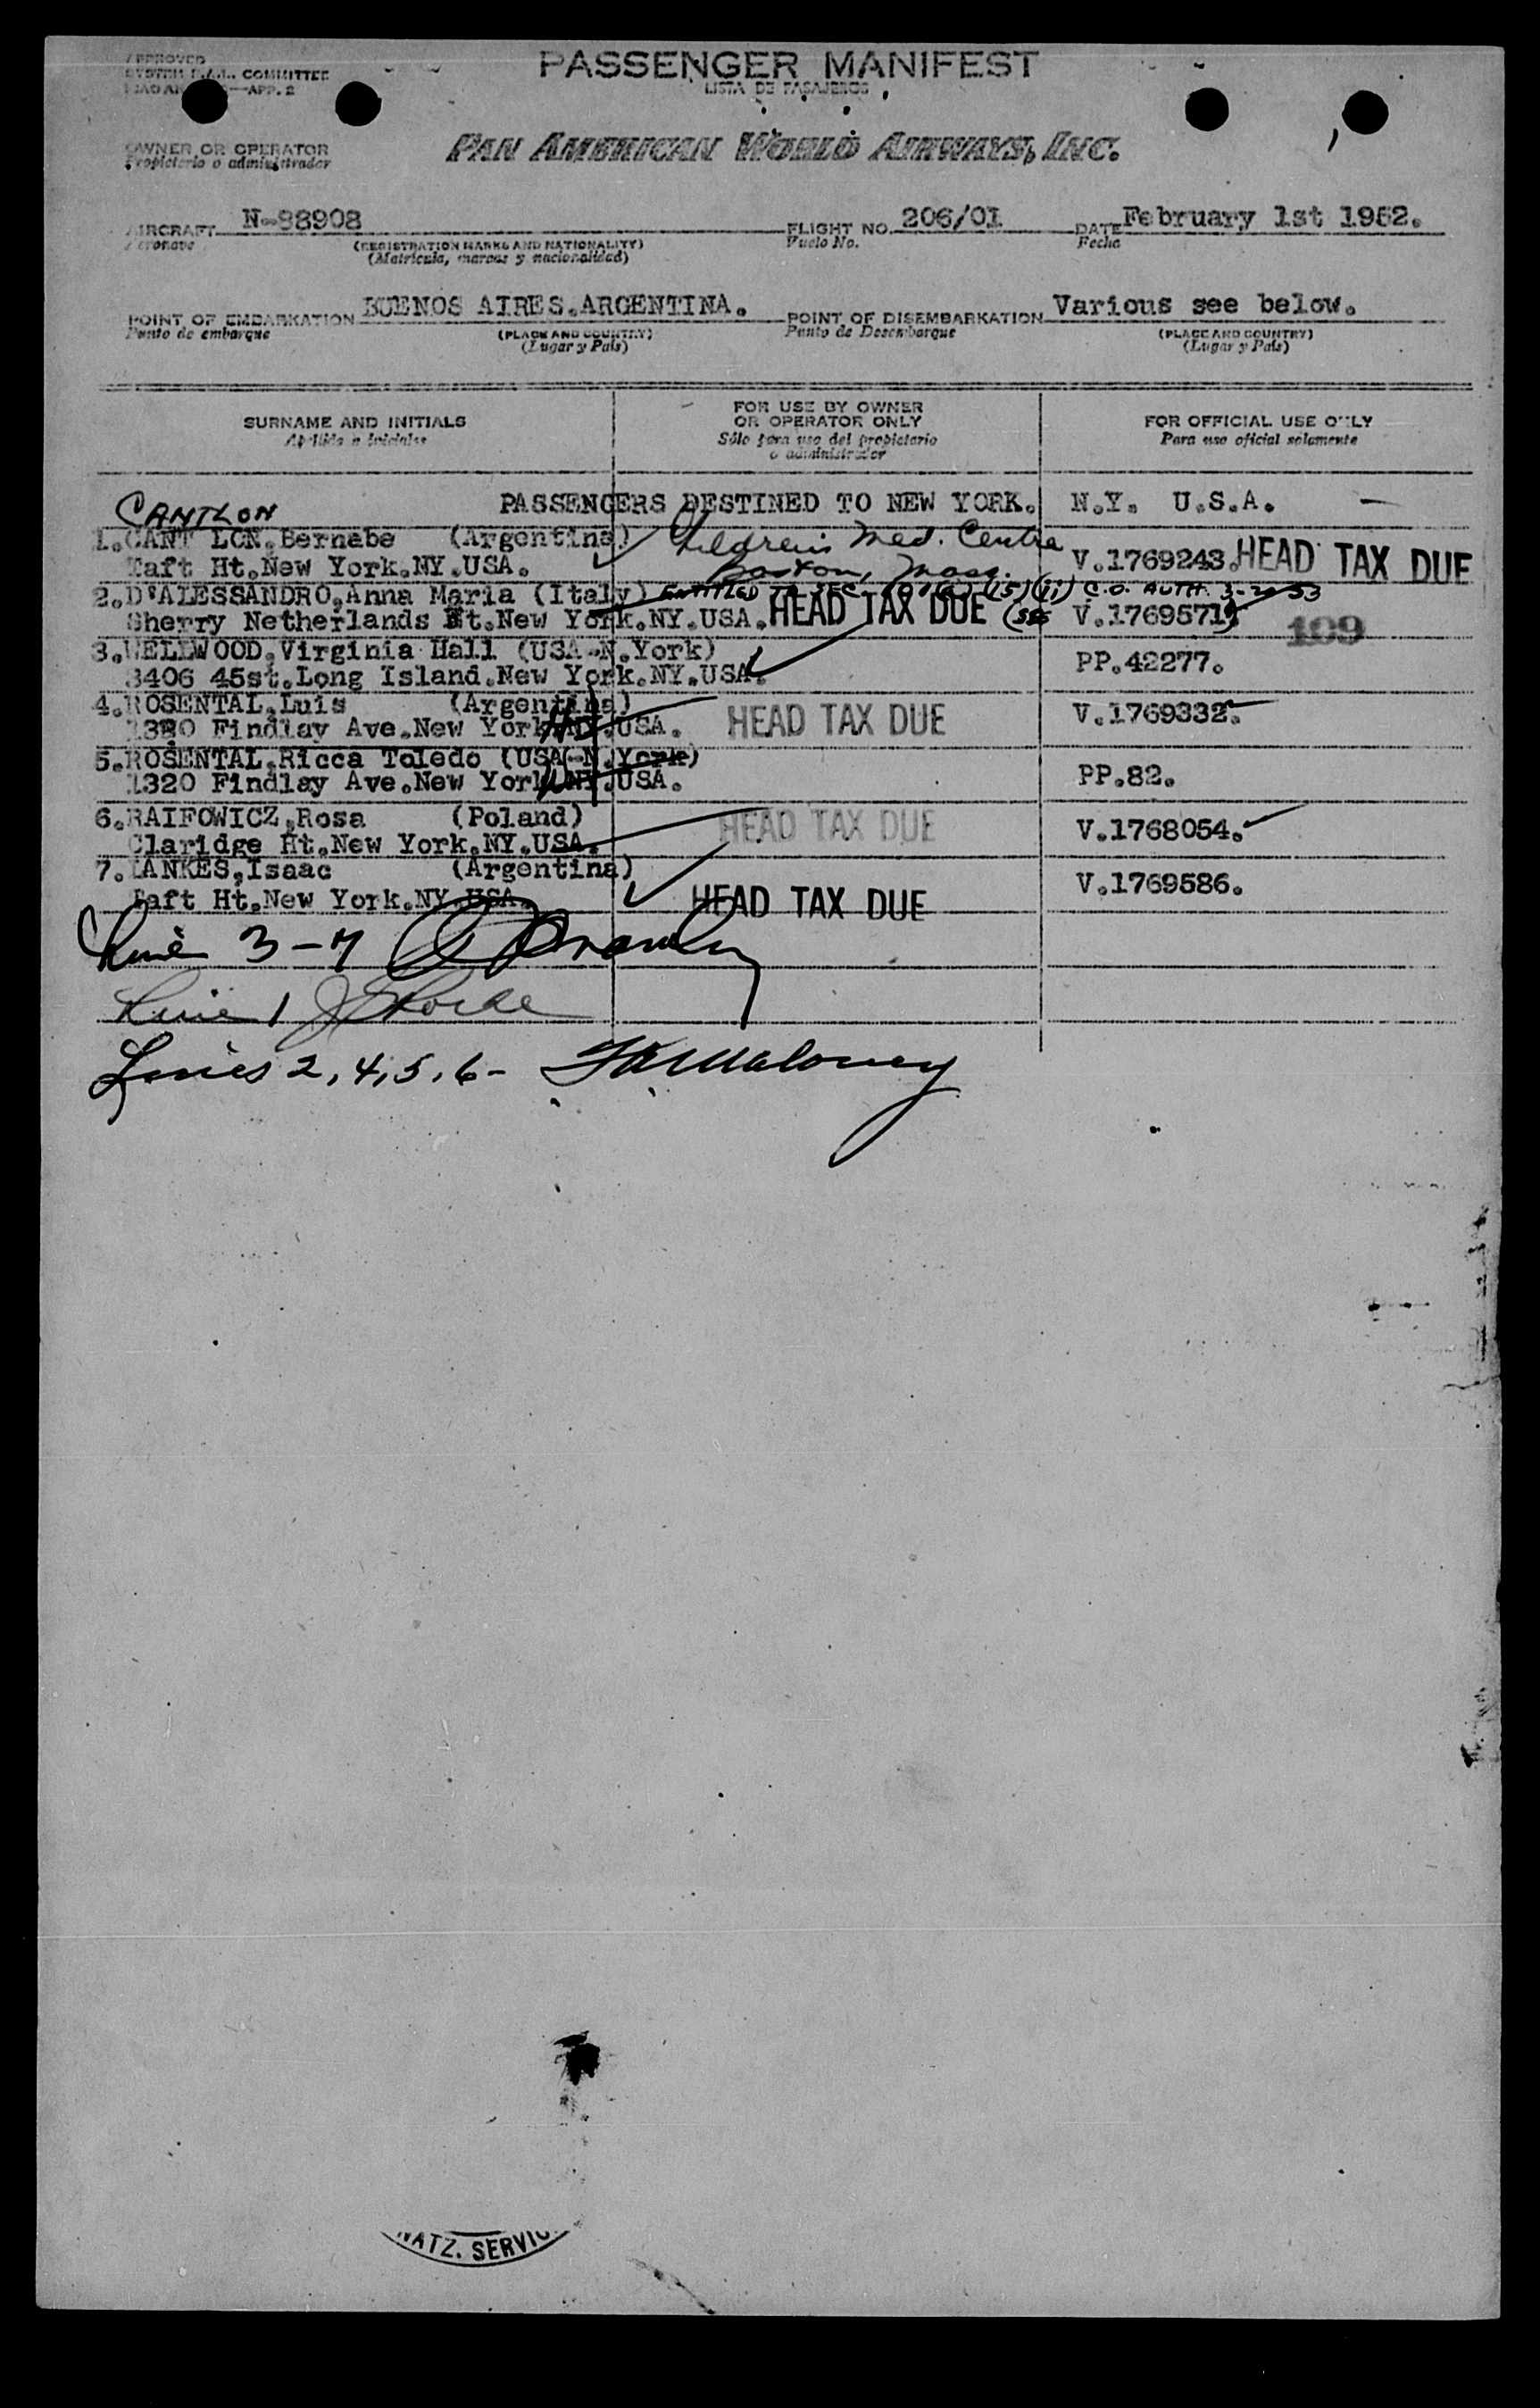 APPROVED
SYSTEM F.A.L. COMMITTEE
ICAO AN —APP. 2
PASSENGER MANIFEST
LISTA DE PASAJEROS
OWNER OR OPERATOR
Propietario o administrador
PAN AMERICAN WORLD AIRWAYS, INC.
AIRCRAFT N-88908 FLIGHT NO. 206/01 DATE February 1st 1952.
Aeronave (REGISTRATION MARKS AND NATIONALITY) Vuelo No. Fecha
(Matrícula, marcas y nacionalidad)
POINT OF EMBARKATION BUENOS AIRES.ARGENTINA. POINT OF DISEMBARKATION Various see below.
Punto de embarque (PLACE AND COUNTRY) Punto de Desembarque (PLACE AND COUNTRY)
(Lugar y País) (Lugar y País)
SURNAME AND INITIALS FOR USE BY OWNER OR OPERATOR ONLY FOR OFFICIAL USE ONLY
Apellido e iniciales Sólo para uso del propietario o administrador Para uso oficial solamente
PASSENGERS DESTINED TO NEW YORK. N.Y. U.S.A. —
CANTLON
1.CANT LON.Bernabe (Argentina) Children's Med. Centre
Taft Ht.New York.NY.USA. Boston, Mass. V.1769243. HEAD TAX DUE
2.D'ALESSANDRO.Anna Maria (Italy) ENTITLED TO SEC. 101(a)(15)(ii) C.O. AUTH. 3-20-53
Sherry Netherlands Ht.New York.NY.USA. HEAD TAX DUE V.1769571 109
3.WELLWOOD.Virginia Hall (USA-N.York)
3406 45st.Long Island.New York.NY.USA. PP.42277.
4.ROSENTAL.Luis (Argentina)
1320 Findlay Ave.New York.NY.USA. HEAD TAX DUE V.1769332.
5.ROSENTAL.Ricca Toledo (USA-N.York)
1320 Findlay Ave.New York.NY.USA. PP.82.
6.RAIFOWICZ,Rosa (Poland)
Claridge Ht.New York.NY.USA. HEAD TAX DUE V.1768054.
7.LANKES,Isaac (Argentina)
Taft Ht,New York.NY.USA. HEAD TAX DUE V.1769586.
Line 3-7
Line 1
Lines 2,4,5,6- Maloney
NATZ. SERVIC